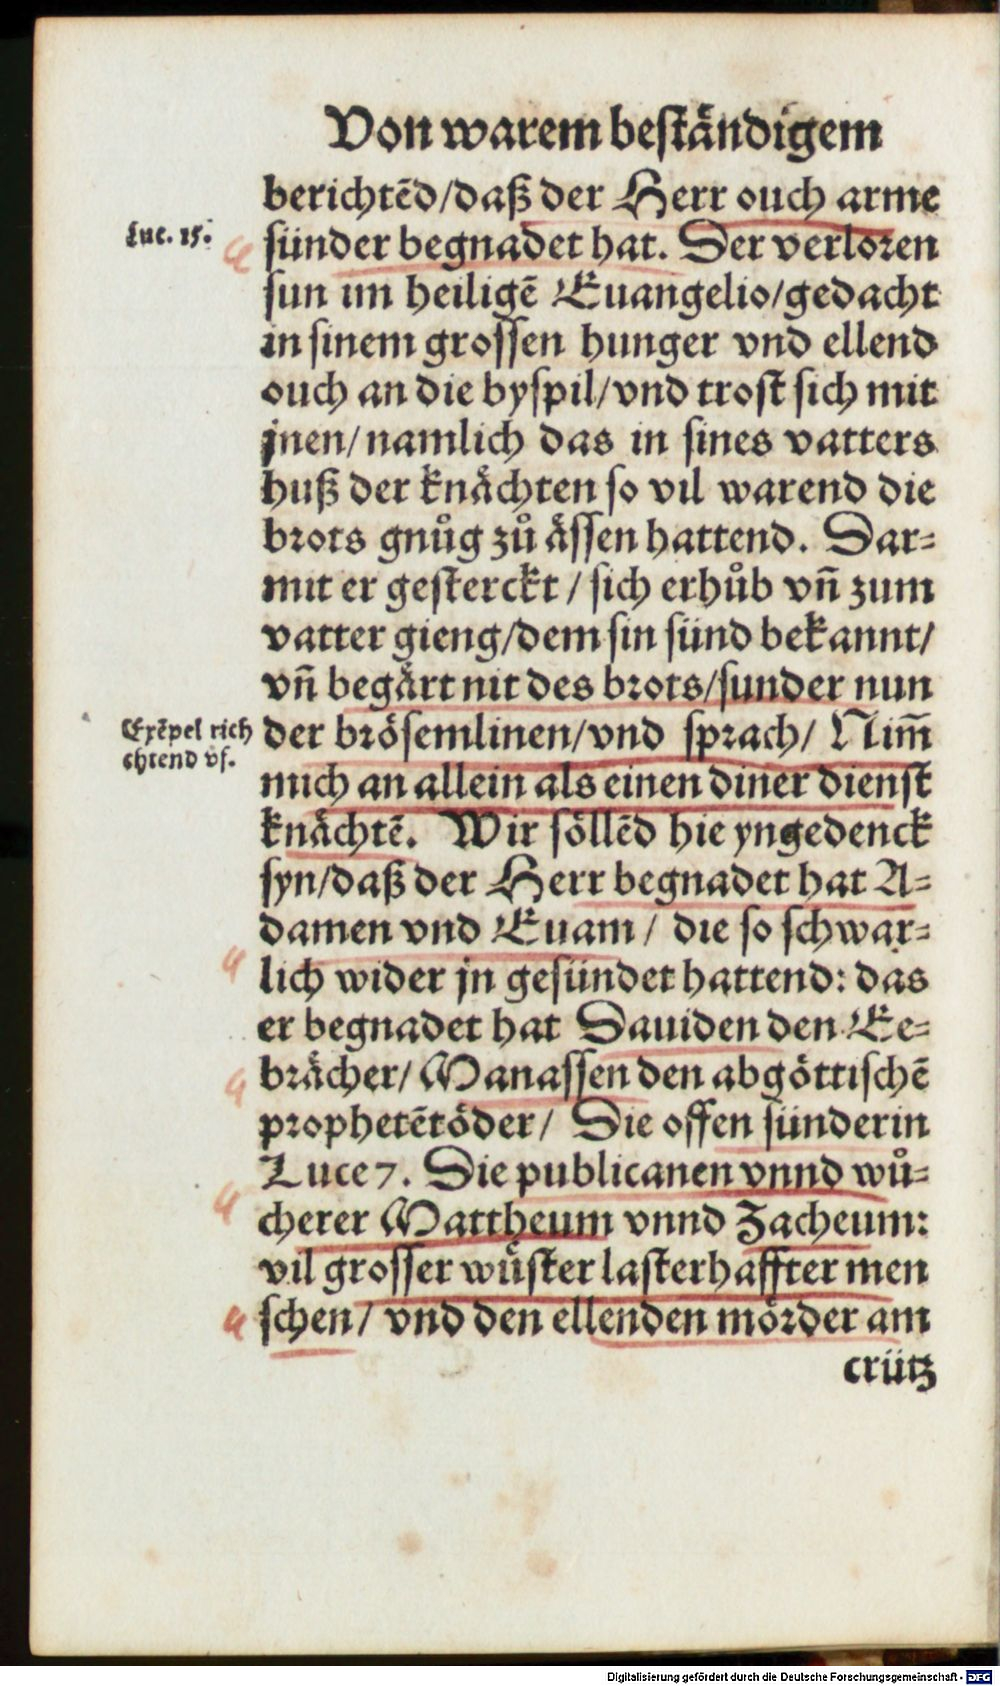 Von warem beständigem
berichtēd/daß der Herr ouch arme
Luc. 15.
sünder begnadet hat. Der verloren
sun im heiligē Euangelio/gedacht
in sinem grossen hunger vnd ellend
ouch an die byspil/vnd trost sich mit
jnen/namlich das in sines vatters
huß der knächten so vil warend die
brots gnůg zů ässen hattend. Dar⸗
mit er gesterckt/sich erhůb vñ zum
vatter gieng/dem sin sünd bekannt/
vñ begärt nit des brots/sunder nun
Exēpel rich
chtend vf.
der brösemlinen/vnd sprach/Nim̄
mich an allein als einen diner dienst
knächtē. Wir söllēd hie yngedenck
syn/daß der Herr begnadet hat A⸗
damen vnd Euam/ die so schwar⸗
lich wider jn gesündet hattend: das
er begnadet hat Dauiden den Ee⸗
brächer/Manassen den abgöttischē
prophetētöder/ Die offen sünderin
Luce 7. Die publicanen vnnd wů⸗
cherer Mattheum vnnd Zacheum:
vil grosser wüster lasterhaffter men
schen/ vnd den ellenden mörder am
crütz
Digitalisierung gefördert durch die Deutsche Forschungsgemeinschaft - DFG